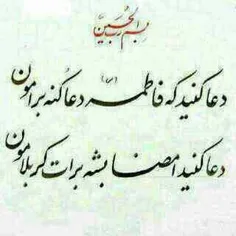 بسم رب الحسین
دعا کنید که فاطمه (س) دعا کنه برامون
دعا کنید امضا بشه برات کربلامون